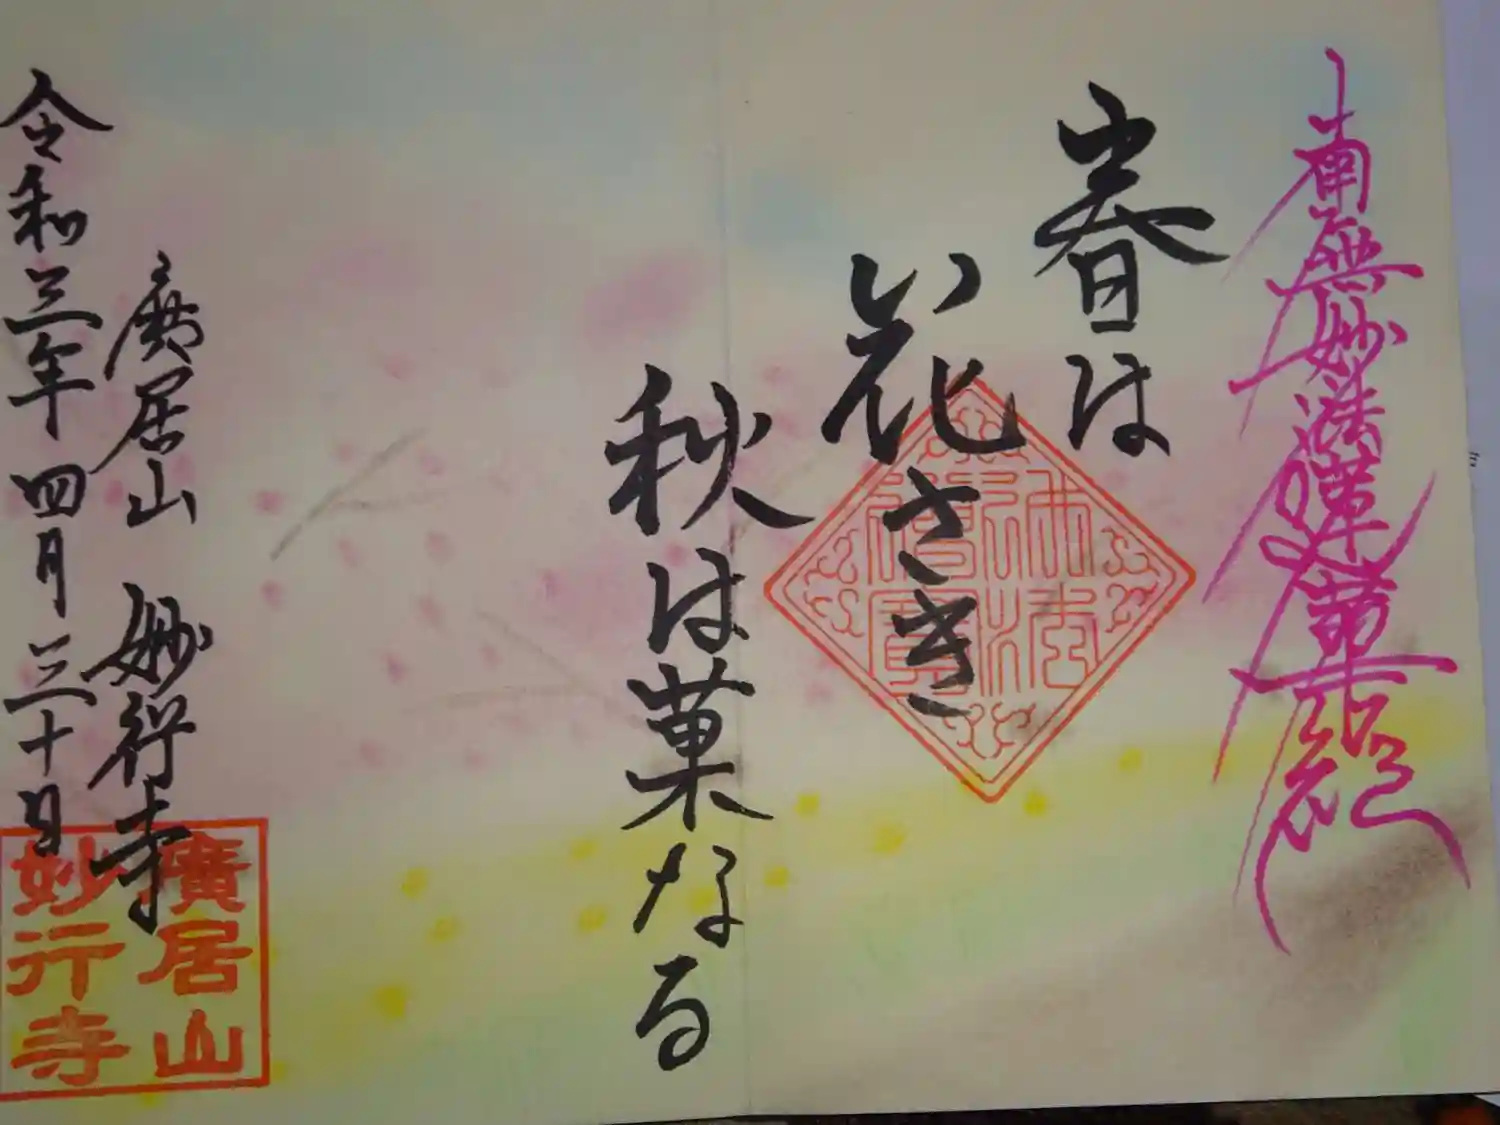 南無妙法蓮華経
春は
花さき
秋は菓なる
廣居山 妙行寺
令和三年四月三十日
佛法
僧寳
廣居山
妙行寺